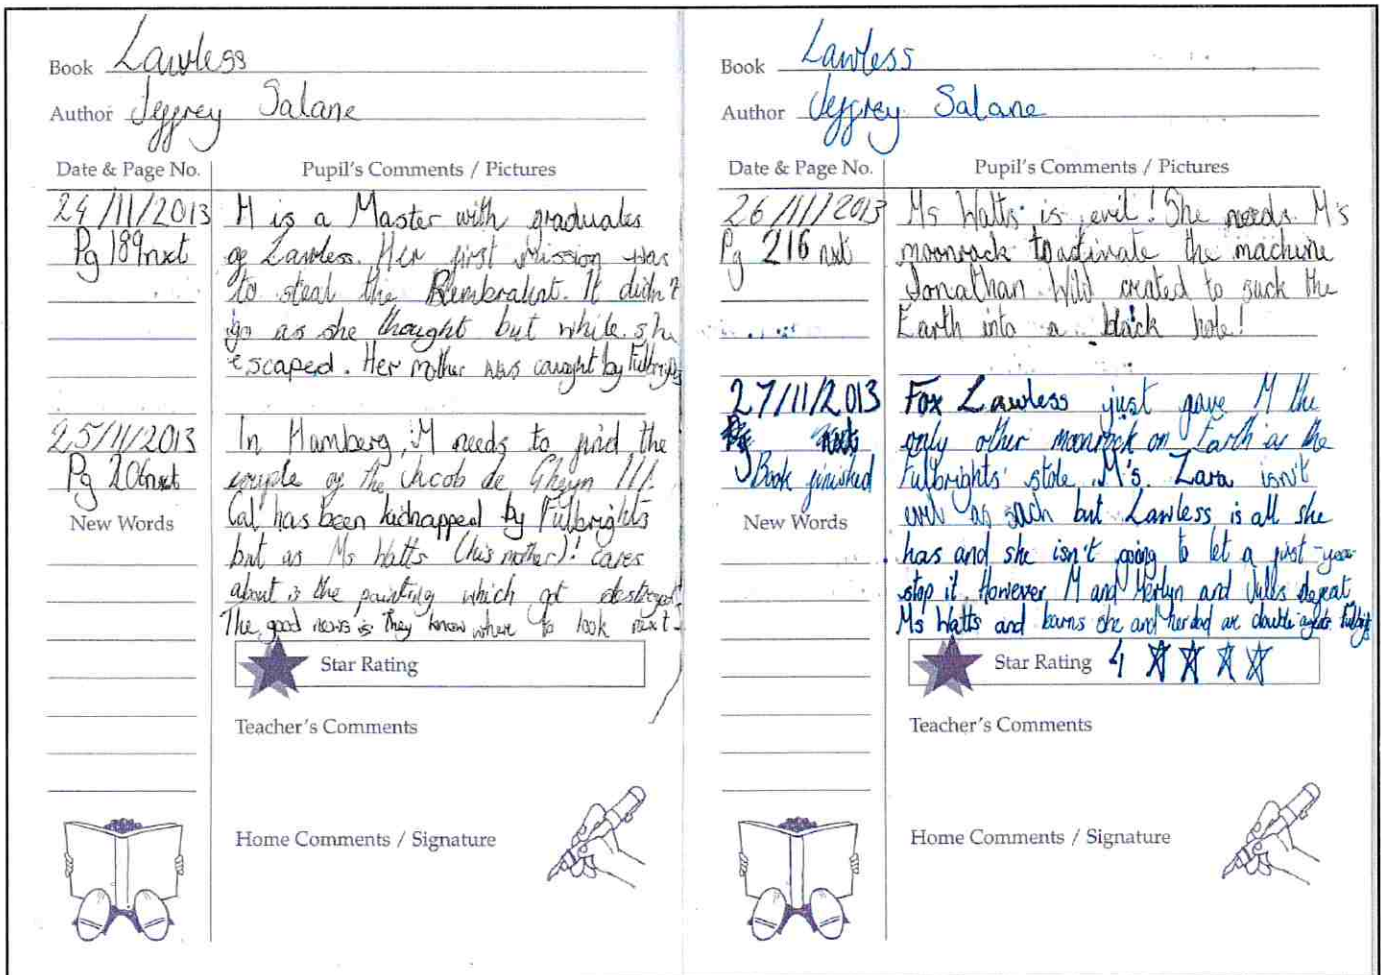 Book Lawless
Author Jeffrey Salane
Date & Page No.
Pupil's Comments / Pictures
24/11/2013
Pg 189nxt
M is a Master with graduates
of Lawless. Her first Mission was
to steal the
It didn't
go as she thought but while she
escaped. Her mother was caught by
25/11/2013
Pg 206nxt
In Hamberg, M needs to find the
couple of the Jacob de Gheyn III.
Cal has been kidnapped by Fulbrights
but as Ms Watts (his mother)! cares
about is the painting which got
The good news is they know where to look next.
New Words
Star Rating
Teacher's Comments
Home Comments / Signature
Book Lawless
Author Jeffrey Salane
Date & Page No.
Pupil's Comments / Pictures
26/11/2013
Pg 216 nxt
Ms Watts is evil! She needs M's
moonrock to activate the machine
Jonathan Wild created to suck the
Earth into a black hole!
27/11/2013
Book finished
Fox Lawless just gave M the
only other moonrock on Earth as the
Fulbrights' stole M's. Zara isn't
evil as such but Lawless is all she
has and she isn't going to let a first-year
stop it. However M and Merlyn and Jules defeat
Ms Watts and learns she and her dad are double agents
New Words
Star Rating 4
Teacher's Comments
Home Comments / Signature